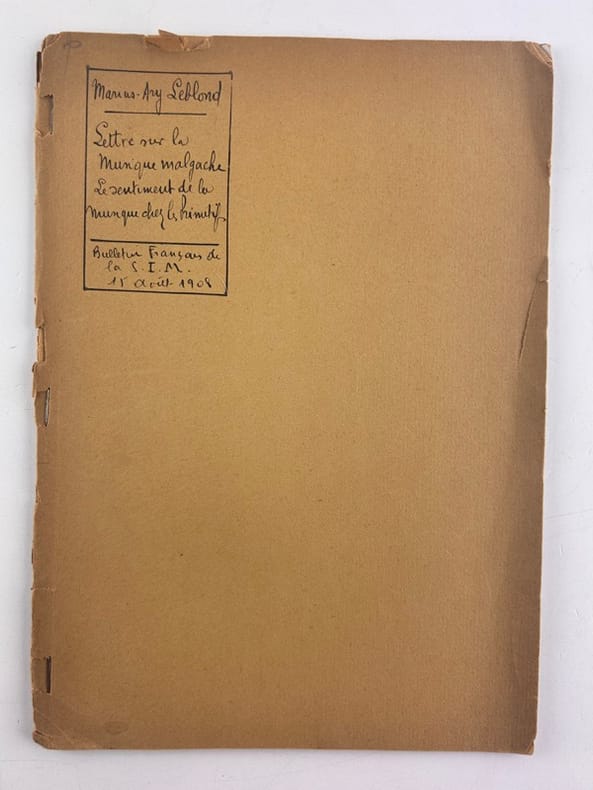 Marius-Ary Leblond
Lettre sur la
Musique malgache
Le sentiment de la
musique chez les primitifs
Bulletin Français de
la S.I.M.
15 août 1908